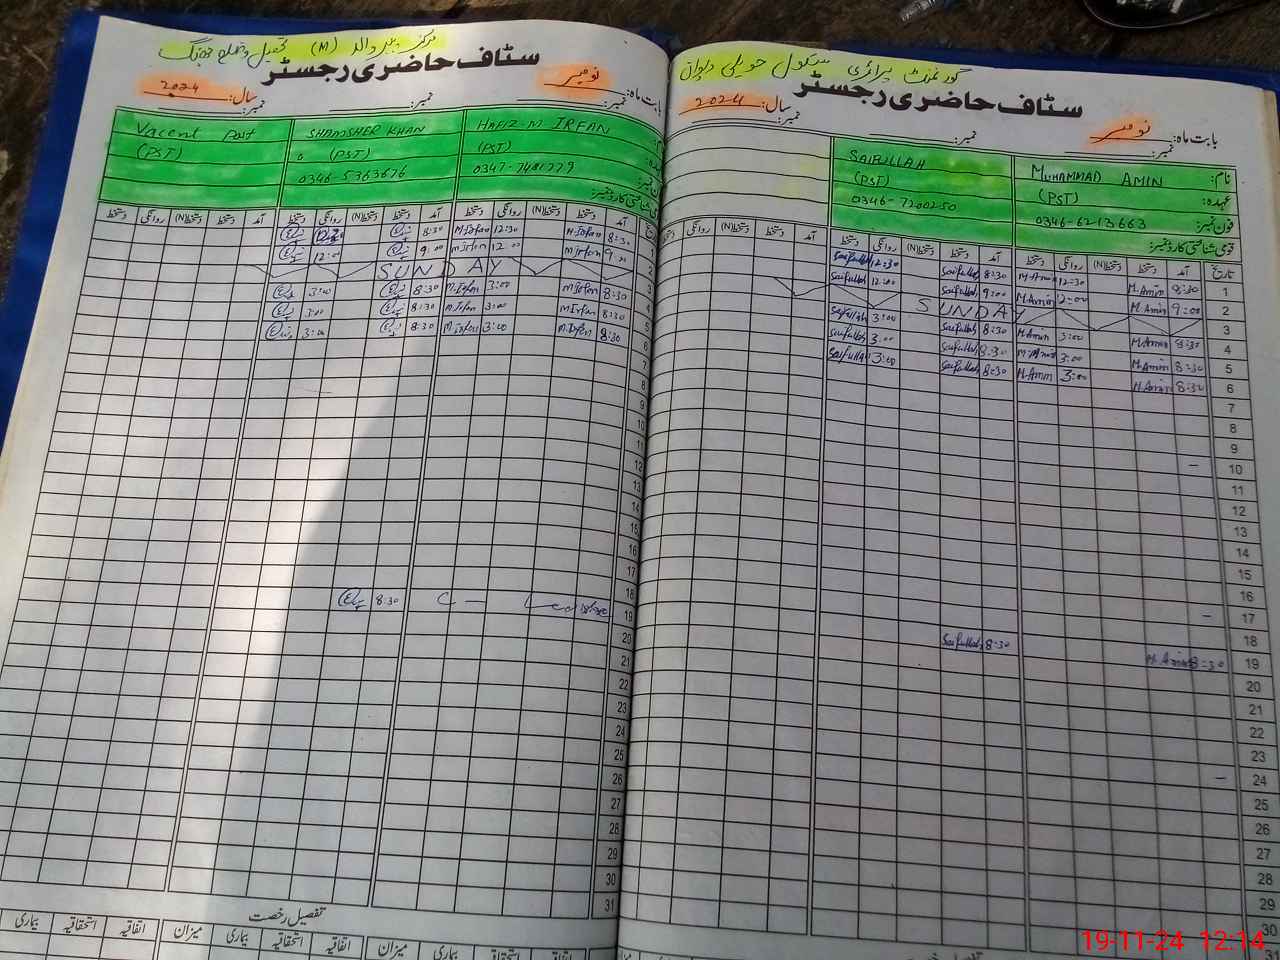 گورنمنٹ پرائمری سکول حویلی دیوان
سٹاف حاضری رجسٹر
بابت ماہ: نومبر سال: 2024
نمبر: نمبر:
نام: MUHAMMAD AMIN SAIFULLAH
عہدہ: (PST) (PST)
فون نمبر: 0346-6213663 0346-7200250
قومی شناختی کارڈ نمبر:
تاریخ آمد دستخط دستخط(N) روانگی دستخط آمد دستخط دستخط(N) روانگی دستخط آمد دستخط دستخط(N) روانگی دستخط
1 8:30 M.Amin 12:30 M.Amin 8:30 Saifullah 12:30 Saifullah
2 9:00 M.Amin 12:00 M.Amin 9:00 Saifullah 12:00 Saifullah
3 SUNDAY
4 8:30 M.Amin 3:00 M.Amin 8:30 Saifullah 3:00 Saifullah
5 8:30 M.Amin 3:00 M.Amin 8:30 Saifullah 3:00 Saifullah
6 8:30 M.Amin 3:00 M.Amin 8:30 Saifullah 3:00 Saifullah
7
8
9
10
11
12
13
14
15
16
17
18
19 8:30 M.Amin 8:30 Saifullah
20
21
22
23
24
25
26
27
28
29
30
31
مرکز پیر والا (M) تحصیل و ضلع جھنگ
سٹاف حاضری رجسٹر
بابت ماہ: نومبر سال: 2024
نمبر: نمبر:
HAFIZ-M IRFAN SHAMSHER KHAN Vacent Post
(PST) (PST) (PST)
0347-7481779 0346-5363676
قومی شناختی کارڈ نمبر:
آمد دستخط دستخط(N) روانگی دستخط آمد دستخط دستخط(N) روانگی دستخط آمد دستخط دستخط(N) روانگی دستخط
8:30 M.Irfan 12:30 M.Irfan 8:30
2 9:00 M.Irfan 12:00 M.Irfan 9:00 12:00
3 SUNDAY
4 8:30 M.Irfan 3:00 M.Irfan 8:30 3:00
5 8:30 M.Irfan 3:00 M.Irfan 8:30 3:00
6 8:30 M.Irfan 3:00 M.Irfan 8:30 3:00
7
8
9
10
11
12
13
14
15
16
17
18
19 8:30
20
21
22
23
24
25
26
27
28
29
30
31
تفصیل رخصت
اتفاقیہ استحقاقیہ بیماری میزان اتفاقیہ استحقاقیہ بیماری میزان اتفاقیہ استحقاقیہ بیماری
19-11-24 12:14